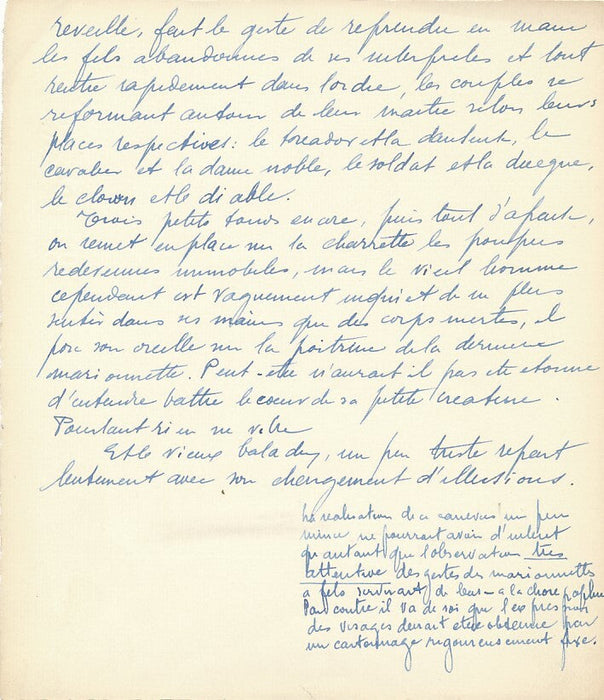 reveille, fait le geste de reprendre en main
les fils abandonnes de ses interpretes et tout
rentre rapidement dans l'ordre, les couples se
reformant autour de leur maitre selon leurs
places respectives: le toreador et la danseuse, le
cavalier et la dame noble, le soldat et la duegne,
le clown et le diable.
Trois petits tours encore, puis tout s'apaise,
on remet en place sur la charrette les poupees
redevenues immobiles, mais le vieil homme
cependant est vaguement inquiet de ne plus
sentir dans ses mains que des corps inertes, il
pose son oreille sur la poitrine de la derniere
marionnette. Peut-etre n'aurait il pas ete etonne
d'entendre battre le coeur de sa petite creature.
Pourtant rien ne vibre
Et le vieux baladin, un peu triste repart
lentement avec son chargement d'illusions.
La realisation de ce canevas un peu
mince ne pourrait avoir d'interet
qu'autant que l'observation tres
attentive des gestes des marionnettes
a fils servirait de base a la choregraphie
Par contre il va de soi que l'expression
des visages devrait etre obtenue par
un cartonnage rigoureusement fixe.